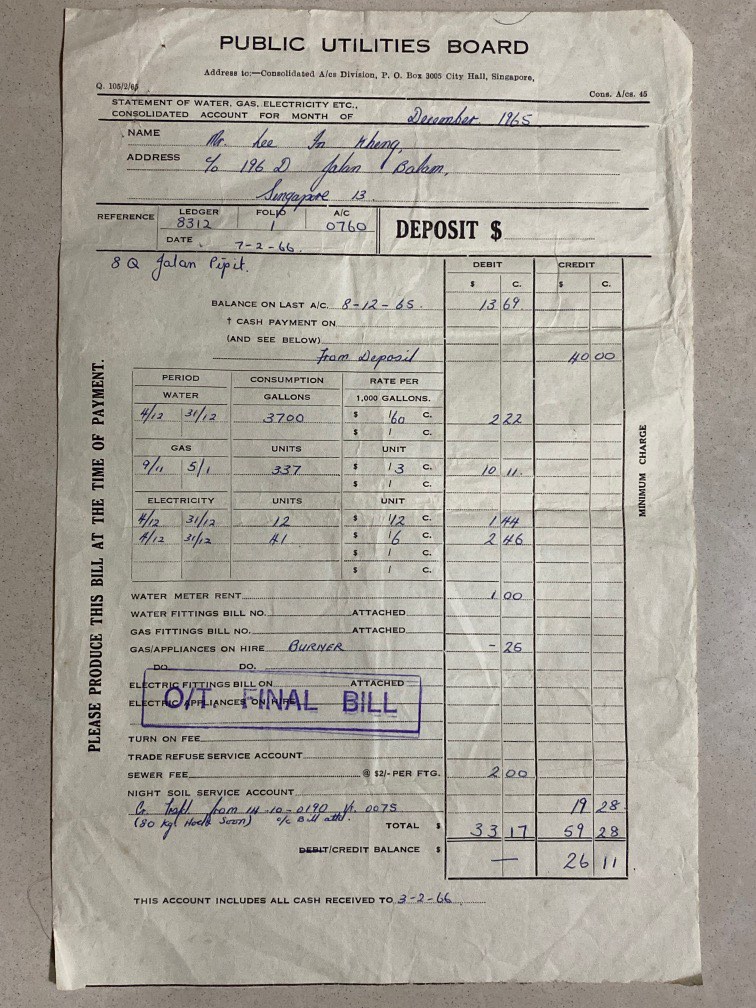 PUBLIC UTILITIES BOARD
Address to:—Consolidated A/cs Division, P. O. Box 3005 City Hall, Singapore,
Q. 105/2/65
Cons. A/cs. 45
STATEMENT OF WATER, GAS, ELECTRICITY ETC.,
CONSOLIDATED ACCOUNT FOR MONTH OF December 1965
NAME Mr. Lee In Kheng,
ADDRESS c/o 196 D Jalan Balam,
Singapore 13
REFERENCE LEDGER FOLIO A/C
8312 1 0760
DATE 7-2-66.
DEPOSIT $
8 Q Jalan Pipit.
DEBIT CREDIT
$ C. $ C.
BALANCE ON LAST A/C. 8-12-65. 13 69
† CASH PAYMENT ON
(AND SEE BELOW)
From Deposit 40 00
PERIOD CONSUMPTION RATE PER
WATER GALLONS 1,000 GALLONS.
4/12 31/12 3700 $ /60 C. 2 22
$ / C.
GAS UNITS UNIT
9/11 5/1 337 $ /3 C. 10 11
$ / C.
ELECTRICITY UNITS UNIT
4/12 31/12 12 $ /12 C. 1 44
4/12 31/12 41 $ /6 C. 2 46
$ / C.
$ / C.
WATER METER RENT 1 00
WATER FITTINGS BILL NO. ATTACHED
GAS FITTINGS BILL NO. ATTACHED
GAS/APPLIANCES ON HIRE BURNER - 25
DO. DO.
ELECTRIC FITTINGS BILL ON ATTACHED
ELECTRIC APPLIANCES ON HIRE
O/T. FINAL BILL
TURN ON FEE
TRADE REFUSE SERVICE ACCOUNT
SEWER FEE @ $2/- PER FTG. 2 00
NIGHT SOIL SERVICE ACCOUNT
Cr. Trsf. from 14-10-0190 0075 19 28
(80 Kg. Hock Soon) o/c Bill attd.
TOTAL $ 33 17 59 28
DEBIT/CREDIT BALANCE $ — 26 11
THIS ACCOUNT INCLUDES ALL CASH RECEIVED TO 3-2-66
PLEASE PRODUCE THIS BILL AT THE TIME OF PAYMENT.
MINIMUM CHARGE